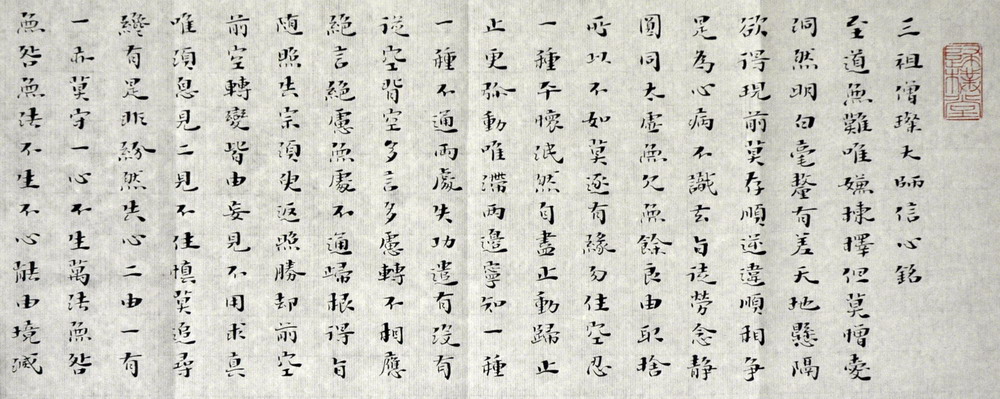 三祖僧璨大師信心銘
至道無難唯嫌揀擇但莫憎愛
洞然明白毫釐有差天地懸隔
欲得現前莫存順逆違順相爭
是為心病不識玄旨徒勞念静
圓同太虛無欠無餘良由取捨
所以不如莫逐有緣勿住空忍
一種平懷泯然自盡止動歸止
止更弥動唯滯兩邊寧知一種
一種不通兩處失功遣有沒有
從空背空多言多慮轉不相應
絕言絕慮無處不通歸根得旨
随照失宗須臾返照勝却前空
前空轉變皆由妄見不用求真
唯須息見二見不住慎莫追尋
纔有是非紛然失心二由一有
一亦莫守一心不生萬法無咎
無咎無法不生不心能由境滅